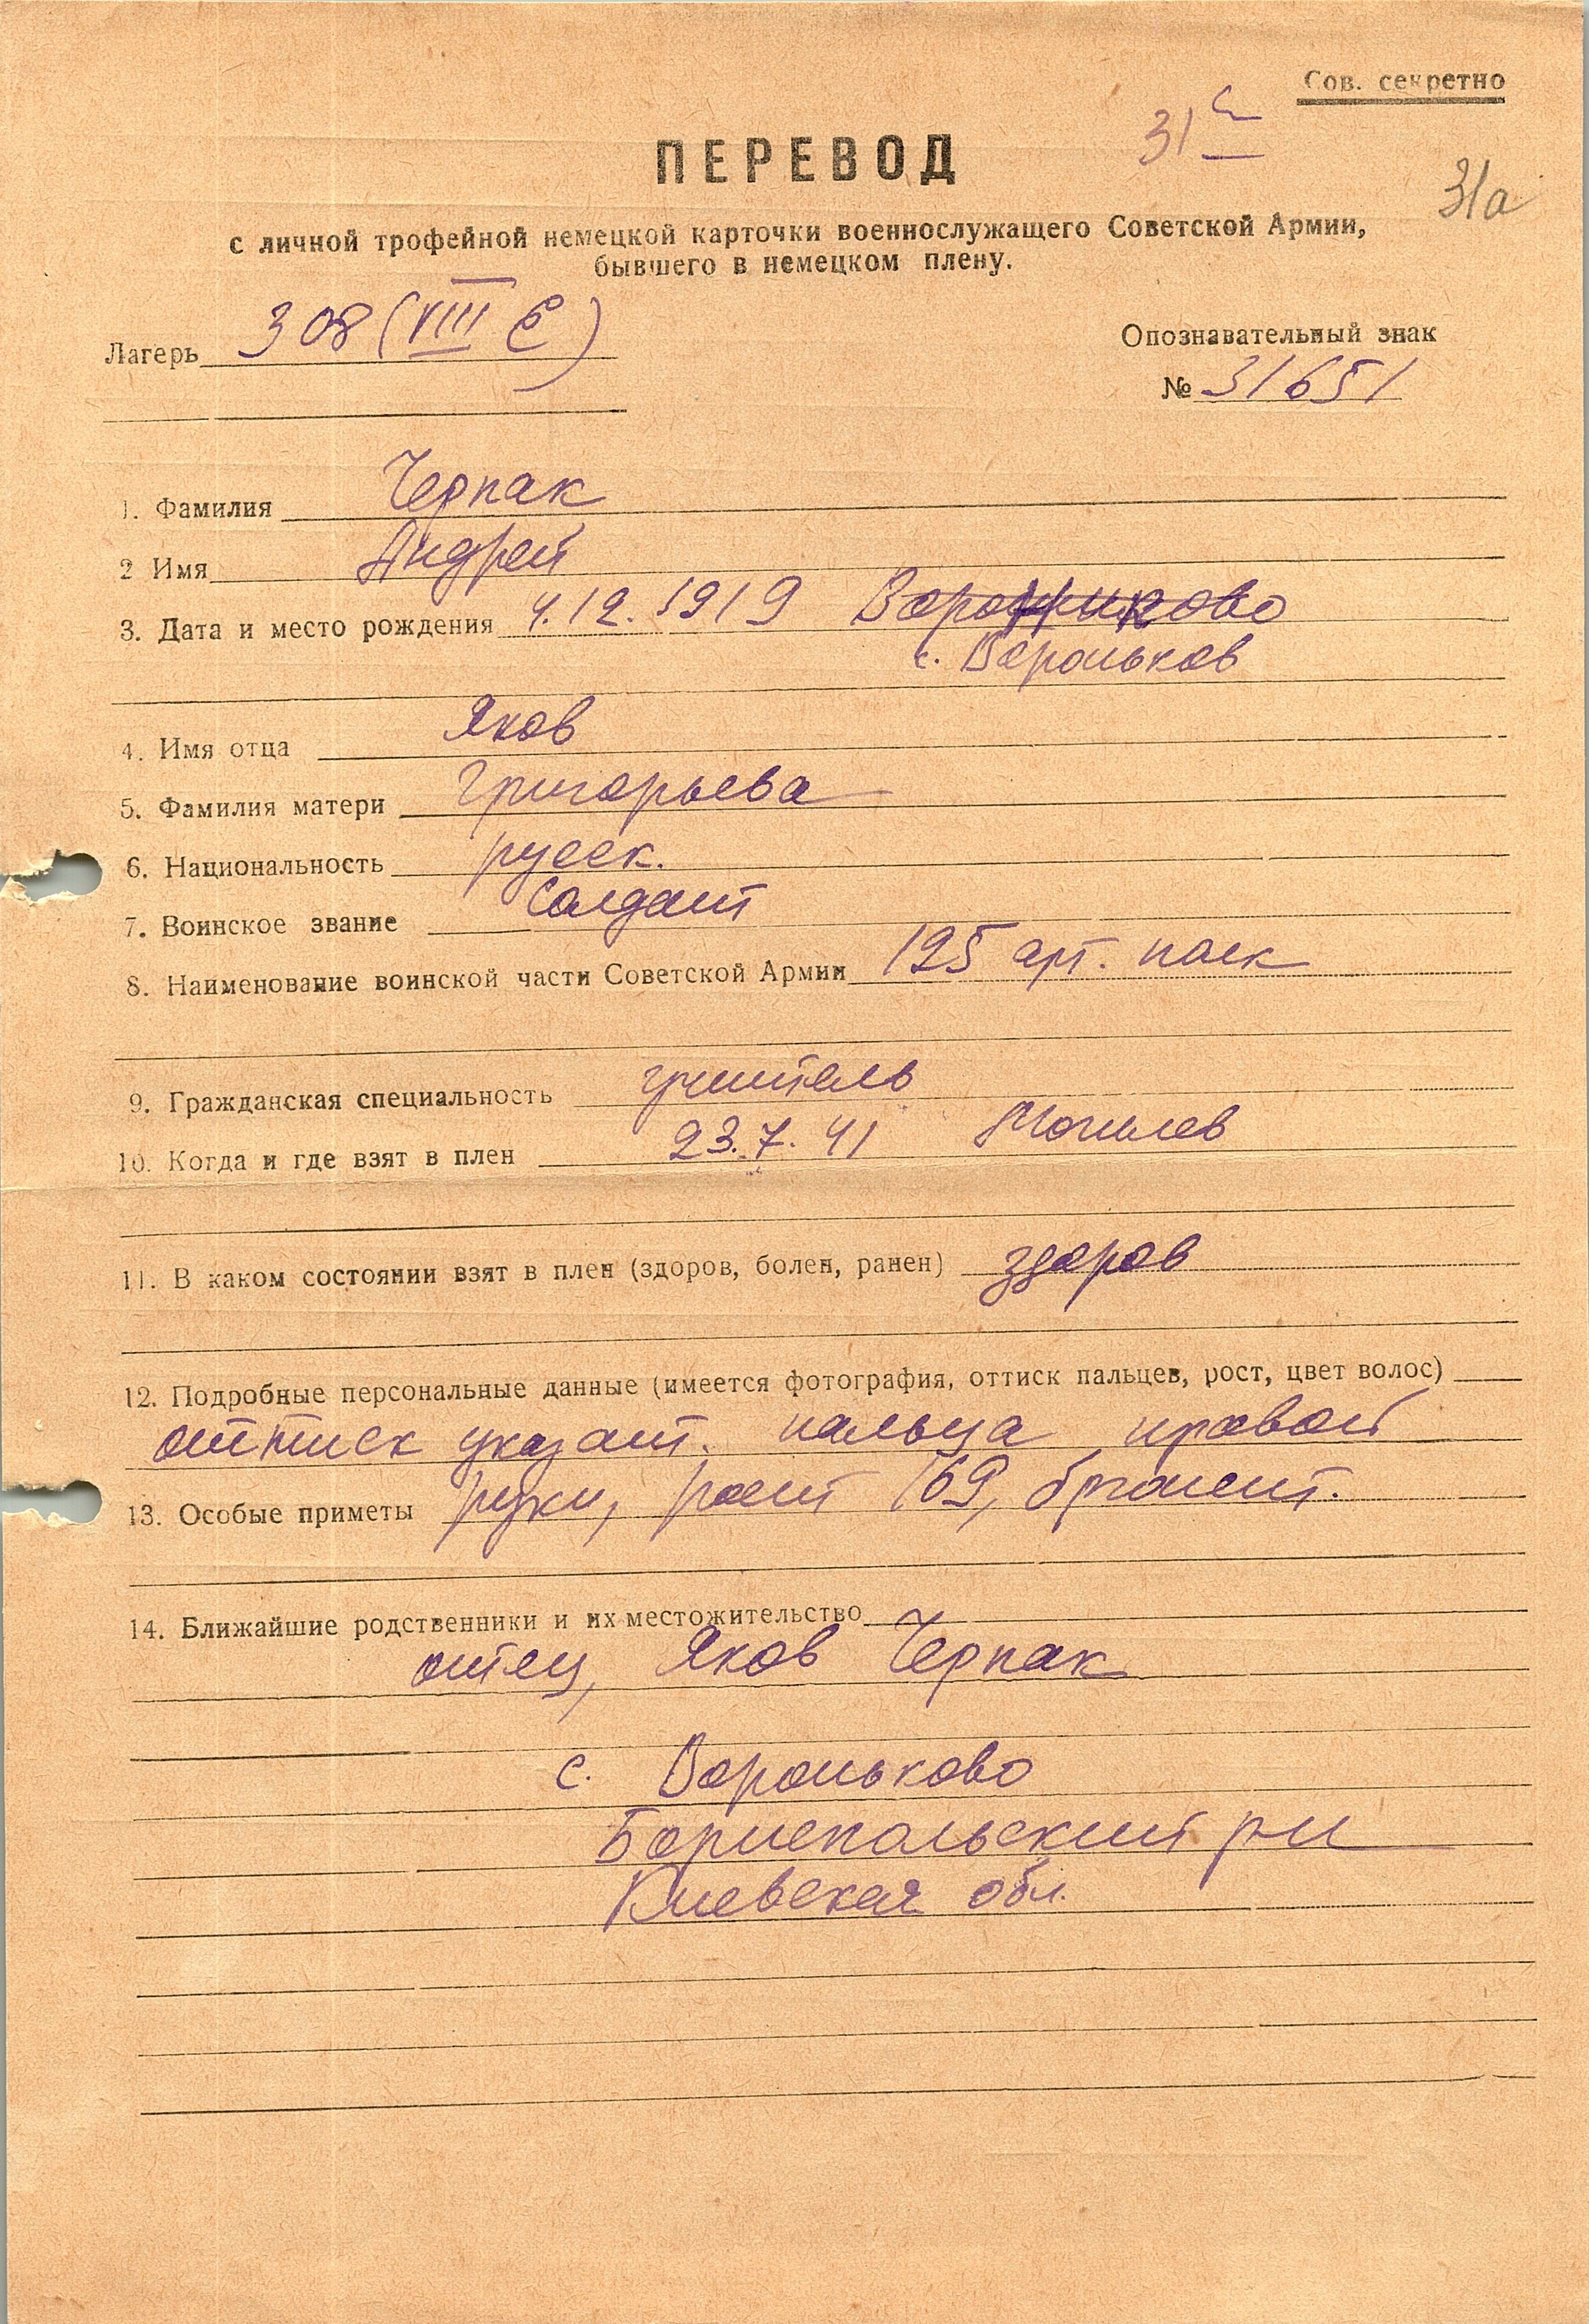 Сов. секретно
31а
ПЕРЕВОД
с личной трофейной немецкой карточки военнослужащего Советской Армии,
бывшего в немецком плену.
Лагерь 308 (VIII Е)
Опознавательный знак
№ 31651
1. Фамилия Черпак
2 Имя Андрей
3. Дата и место рождения 4.12.1919
с. Вороньков
4. Имя отца Яков
5. Фамилия матери Григорьева
6. Национальность русск.
7. Воинское звание Солдат
8. Наименование воинской части Советской Армии 125 арт. полк
9. Гражданская специальность учитель
10. Когда и где взят в плен 23.7.41 Могилев
11. В каком состоянии взят в плен (здоров, болен, ранен) здоров
12. Подробные персональные данные (имеется фотография, оттиск пальцев, рост, цвет волос)
оттиск указат. пальца правой
13. Особые приметы руки, рост 169, брюнет.
14. Ближайшие родственники и их местожительство
отец, Яков Черпак
с. Вороньково
Бориспольский р-н
Киевская обл.